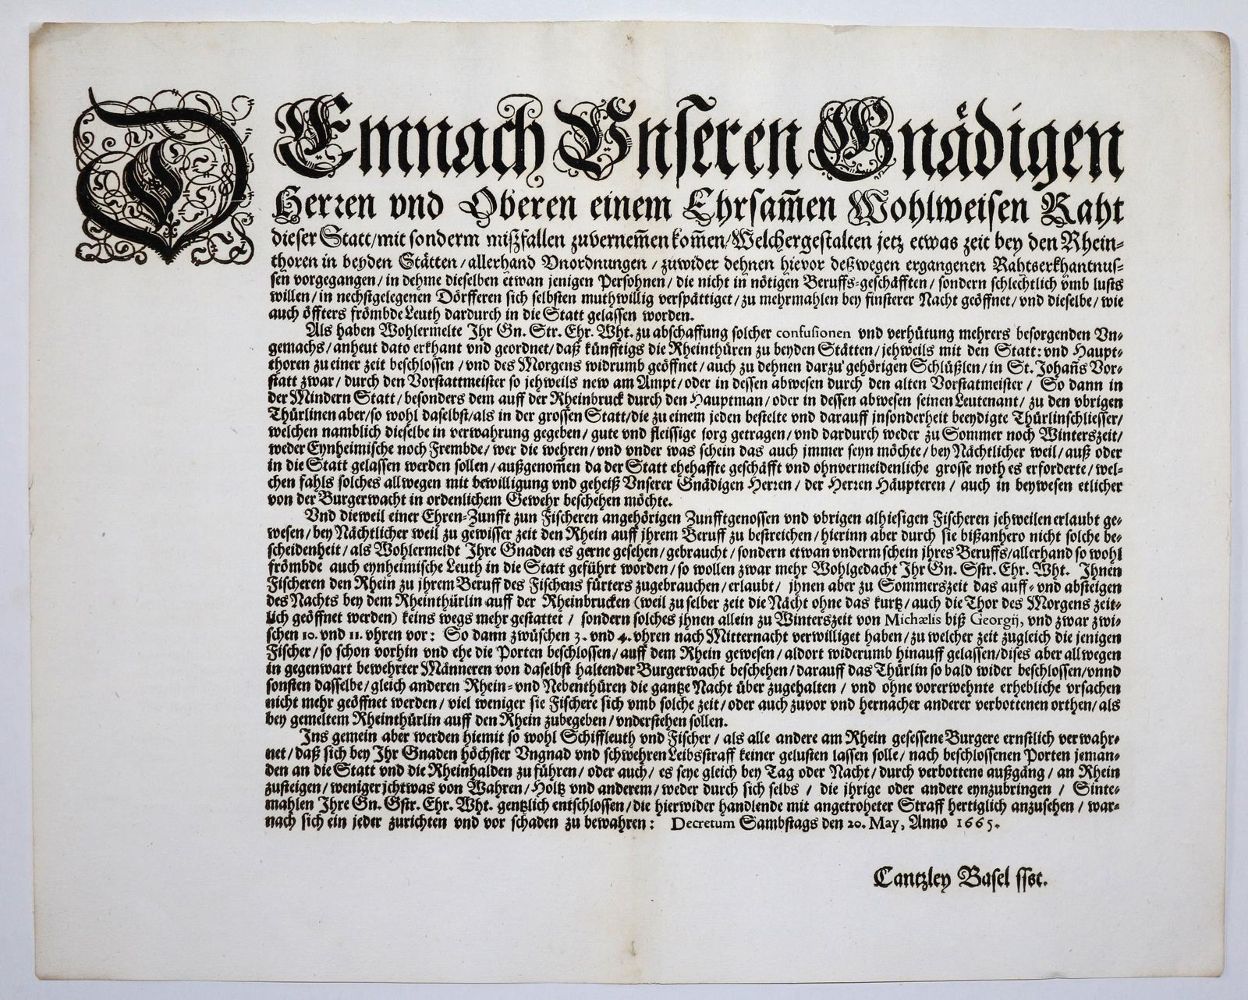 DEmnach Vnseren Gnädigen
Herren vnd Oberen einem Ehrsam̅en Wohlweisen Raht
dieser Statt/mit sonderm mißfallen zuvernem̅en kom̅en/Welchergestalten jetz etwas zeit bey den Rhein-
thoren in beyden Stätten/allerhand Vnordnungen/zuwider dehnen hievor deßwegen ergangenen Rahtserkhantnus-
sen vorgegangen/in dehme dieselben etwan jenigen Persohnen/die nicht in nötigen Beruffs-geschäfften/sondern schlechtlich vmb lusts
willen/in nechstgelegenen Dörfferen sich selbsten muthwillig verspättiget/zu mehrmahlen bey finsterer Nacht geöffnet/vnd dieselbe/wie
auch öffters frömbde Leuth dardurch in die Statt gelassen worden.
Als haben Wohlermelte Ihr Gn. Str. Ehr. Wht. zu abschaffung solcher confusionen vnd verhütung mehrers besorgenden Vn-
gemachs/anheut dato erkhant vnd geordnet/daß künfftigs die Rheinthüren zu beyden Stätten/jehweils mit den Statt: vnd Haupt-
thoren zu einer zeit beschlossen/vnd des Morgens widrumb geöffnet/auch zu dehnen darzu gehörigen Schlüßlen/in St. Johan̅s Vor-
statt zwar/durch den Vorstattmeister so jehweils new am Ampt/oder in dessen abwesen durch den alten Vorstatmeister/ So dann in
der Mindern Statt/besonders dem auff der Rheinbruck durch den Hauptman/oder in dessen abwesen seinen Leutenant/zu den vbrigen
Thürlinen aber/so wohl daselbst/als in der grossen Statt/die zu einem jeden bestelte vnd darauff jnsonderheit beeydigte Thürlinschliesser/
welchen namblich dieselbe in verwahrung gegeben/gute vnd fleissige sorg getragen/vnd dardurch weder zu Sommer noch Winterszeit/
weder Eynheimische noch Frembde/wer die wehren/vnd vnder was schein das auch jmmer seyn möchte/bey Nächtlicher weil/auß oder
in die Statt gelassen werden sollen/außgenom̅en da der Statt ehehaffte geschäfft vnd ohnvermeidenliche grosse noth es erforderte/wel-
chen fahls solches allwegen mit bewilligung vnd geheiß Vnserer Gnädigen Herren/der Herren Häupteren/auch in beywesen etlicher
von der Burgerwacht in ordenlichem Gewehr beschehen möchte.
Vnd dieweil einer Ehren-Zunfft zun Fischeren angehörigen Zunfftgenossen vnd vbrigen alhiesigen Fischeren jehweilen erlaubt ge-
wesen/bey Nächtlicher weil zu gewisser zeit den Rhein auff jhrem Beruff zu bestreichen/hierinn aber durch sie bißanhero nicht solche be-
scheidenheit/als Wohlermeldt Ihre Gnaden es gerne gesehen/gebraucht/sondern etwan vnderm schein jhres Beruffs/allerhand so wohl
frömbde auch eynheimische Leuth in die Statt geführt worden/so wollen zwar mehr Wohlgedacht Ihr Gn. Sstr. Ehr. Wht. Ihnen
Fischeren den Rhein zu jhrem Beruff des Fischens fürters zugebrauchen/erlaubt/ jhnen aber zu Sommerszeit das auff- vnd absteigen
des Nachts bey dem Rheinthürlin auff der Rheinbrucken (weil zu selber zeit die Nächt ohne das kurtz/auch die Thor des Morgens zeit-
lich geöffnet werden) keins wegs mehr gestattet/ sondern solches jhnen allein zu Winterszeit von Michælis biß Georgij, vnd zwar zwi-
schen 10. vnd 11. vhren vor: So dann zwüschen 3. vnd 4. vhren nach Mitternacht verwilliget haben/zu welcher zeit zugleich die jenigen
Fischer/so schon vorhin vnd ehe die Porten beschlossen/auff dem Rhein gewesen/aldort widerumb hinauff gelassen/dises aber allwegen
in gegenwart bewehrter Männeren von daselbst haltender Burgerwacht beschehen/darauff das Thürlin so bald wider beschlossen/vnnd
sonsten dasselbe/gleich anderen Rhein- vnd Nebenthüren die gantze Nacht über zugehalten/ vnd ohne vorerwehnte erhebliche vrsachen
nicht mehr geöffnet werden/viel weniger sie Fischere sich vmb solche zeit/oder auch zuvor vnd hernacher anderer verbottenen orthen/als
bey gemeltem Rheinthürlin auff den Rhein zubegeben/vnderstehen sollen.
Ins gemein aber werden hiemit so wohl Schiffleuth vnd Fischer/als alle andere am Rhein gesessene Burgere ernstlich verwahr-
net/daß sich bey Ihr Gnaden höchster Vngnad vnd schwehren Leibsstraff keiner gelusten lassen solle/nach beschlossenen Porten jeman-
den an die Statt vnd die Rheinhalden zu führen/oder auch/es seye gleich bey Tag oder Nacht/durch verbottene außgäng/an Rhein
zusteigen/weniger jchtwas von Wahren/Holtz vnd anderem/weder durch sich selbs/ die jhrige oder andere eynzubringen/ Sinte-
mahlen Ihre Gn. Gstr. Ehr. Wht. gentzlich entschlossen/die hierwider handlende mit angetroheter Straff hertiglich anzusehen/war-
nach sich ein jeder zurichten vnd vor schaden zu bewahren: Decretum Sambstags den 20. May, Anno 1665.
Cantzley Basel sst.